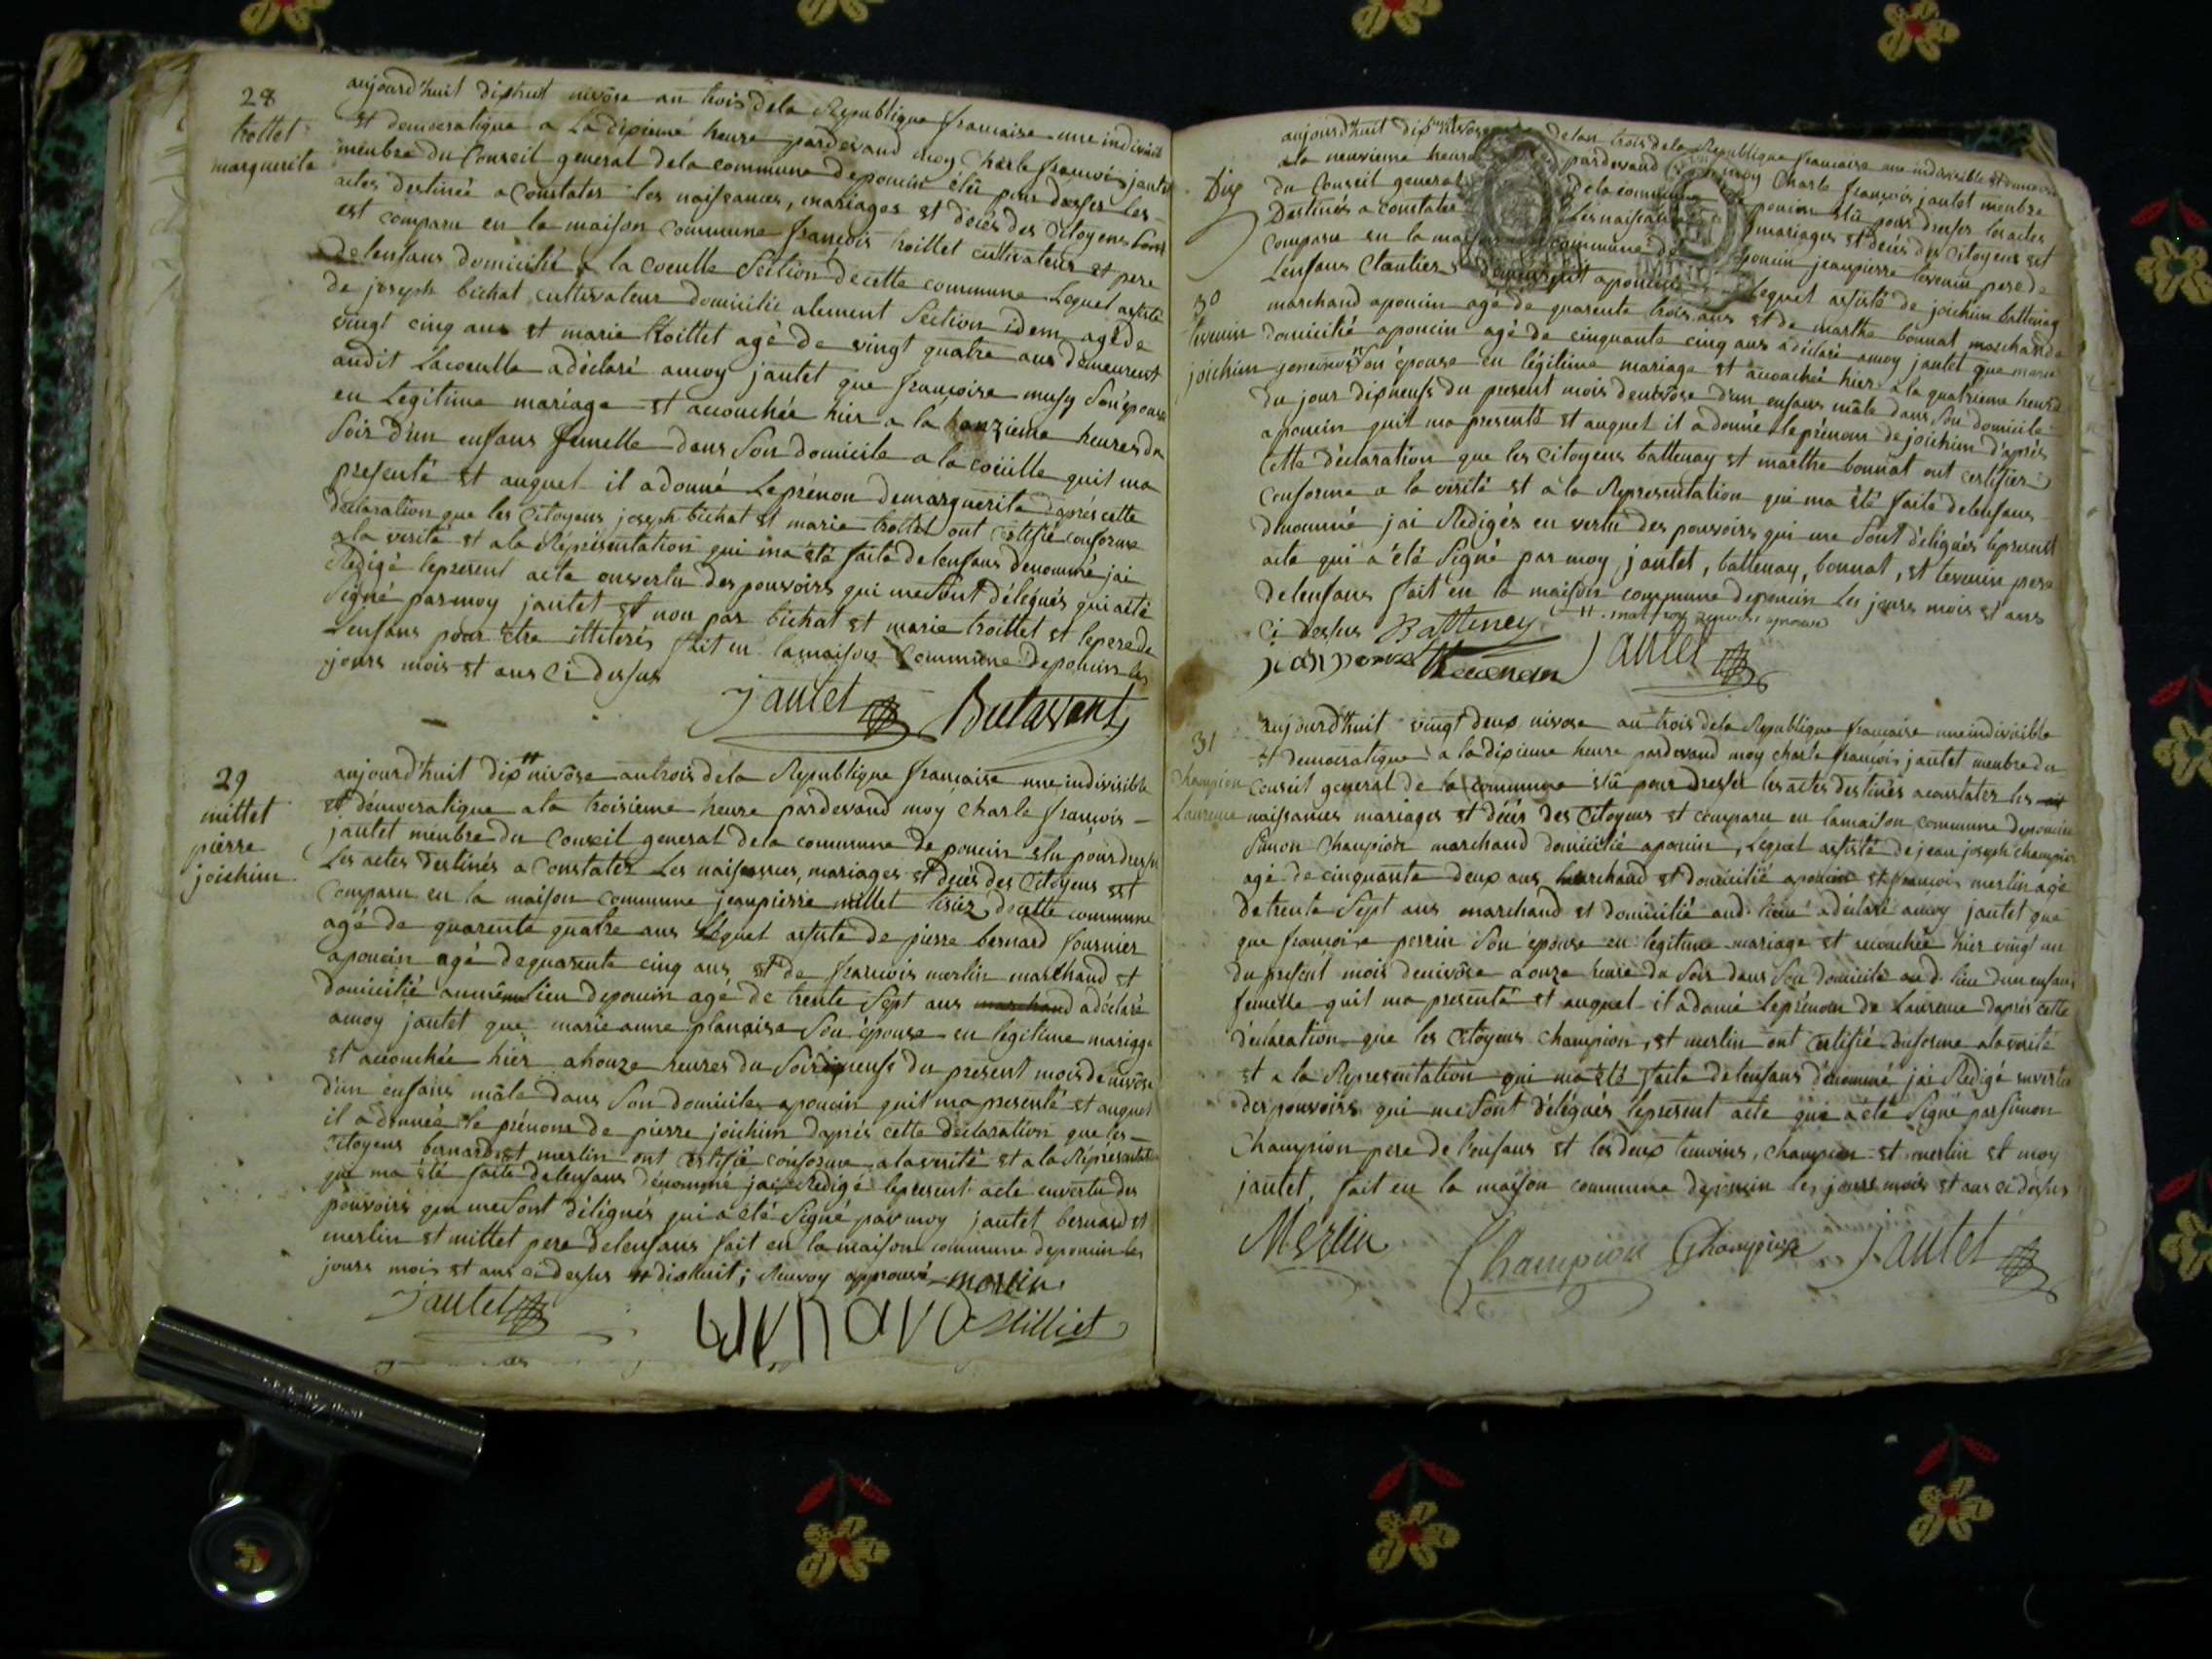 28
trottet
marguerite
aujourd'huit dixhuit nivôse an trois dela Republique francaise une indivisible
et democratique a La dixieme heure pardevand moy Charle francois jautet
menbre du Conseil general dela commune deponcin élû pour dresser les
actes destinée a Constater les naissances, mariages et décès des Citoyens
est comparu en la maison Commune françois troittet cultivateur et pere
delenfans domicilié a la coeulle Section decette commune Lequel assisté
de joseph bichat cultivateur domicilié alement Section idem agé de
vingt cinq ans et marie troittet agé de vingt quatre ans demeurent
audit Lacoeulle a déclaré amoy jautet que francoise musy Son épouse
en Legitime mariage et accouchée hier a la honzieme heures du
Soir d'un enfans femelle dans Son domicile a la coeulle quil ma
presenté et auquel il a donné Leprénon demarguerite daprés cette
declaration que les Citoyens joseph bichat et marie trottet ont certifié conforme
ala verité et ala Répresentation qui ma été faite de lenfans denommé jai
Redigé lepresent acte envertu des pouvoirs qui meSont délégués qui a été
Signé parmoy jautet et non par bichat et marie troittet et leperede
lenfans pour être illiterés fait en lamaison Commune deponcin les
jours mois et ans Ci dessus
jautet Butavant
29
mittet
pierre
joichim
aujourd'huit dix nivôse antrois dela Republique francaise une indivisible
et démocratique ala troisieme heure pardevand moy Charle francois
jautet menbre du Conseil general dela commune de poncin elu pour dresser
Les actes destinés a Constater Les naissances, mariages et décès des Citoyens est
Comparu en la maison Commune jeanpierre millet decette commune
agé de quarente quatre ans Lequel assisté de pierre bernard fournier
aponcin agé dequarente cinq ans et de francois merlin marchand et
domicilié aumême lieu deponcin agé de trente Sept ans marchand a déclaré
amoy jautet que marie anne planaise Son épouse en legitime mariage
et accouchée hier ahonze heures du Soir dixneufs du present mois de nivôse
d'un enfans mâle dans Son domicile aponcin quil ma presenté et auquel
il a donnée le prénom de pierre joichim daprés cette déclaration que les
Citoyens bernard et merlin ont certifié conforme alaverité et ala Répresentation
qui ma été faite delenfans dénommé jai Redigé lepresent acte envertu des
pouvoirs qui meSont délégués qui a été Signé par moy jautet bernard et
merlin et mittet pere delenfans fait en la maison commune deponcin les
jours mois et ans cidessus dixhuit; Renvoy approuvé merlin
jautet bernard Milliet
Dix
30
tevenin
joichim
aujourd'huit dix nivôse delan trois dela Republique francaise une indivisible et
ala neuvieme heure pardevand moy Charle francois jautet menbre
du Conseil general dela commune poncin élû pour dresser les actes
Destinés a constater Les naissances mariages et décès des Citoyens est
Comparu en la maison commune de poncin jeanpierre tevenin pere de
Lenfans Cloutier demeurent aponcin Lequel assisté de joichim battenay
marchand aponcin agé de quarente trois ans et de marthe bonnat marchande
domicilié aponcin agé de cinquante cinq ans a déclaré amoy jautet que marie
Son épouse en légitime mariage et accouchée hier a la quatrieme heure
du jour dixneufs du present mois denivôse d'un enfans mâle dans Son domicile
aponcin quil ma presenté et auquel il a donné leprénom dejoichim d'aprés
Cette déclaration que les Citoyens battenay et marthe bonnat ont certifier
Conforme a la verité et a la Répresentation qui ma été faite delenfans
dénommé jai Redigés en vertu des pouvoirs qui me Sont délégués lepresent
acte qui a été Signé par moy, jautet, battenay, bonnat, et tevenin pere
delenfans fait en la maison commune deponcin Les jours mois et ans
Ci dessus Battiney
jean pierre jautet
31
Champion
Laurence
aujourd'huit vingt deux nivose an trois dela Republique francaise une indivisible
et democratique a la dixieme heure pardevand moy charle francois jautet menbre du
Conseil general de la commune élû pour Dresser les actes destinés aconstater les
naissances mariages et décès des Citoyens et comparu en lamaison commune deponcin
Simon Champion marchand domicilié aponcin, Lequel assisté de jean joseph champion
agé de cinquante deux ans marchand et domicilié aponcin et francois merlin agé
de trente Sept ans marchand et domicilié aud. lieu a déclaré amoy jautet que
que francoise perrin Son épouse en legitime mariage et accouchée hier vingt un
du present mois denivôse a onze heure du Soir dans Son domicile aud. lieu d'un enfans
femelle quil ma presenté et auquel il a donné Leprénom de Laurence daprés cette
déclaration que les Citoyens Champion, et merlin ont certifié conforme alaverité
et a la Répresentation qui ma été faite delenfans dénommé jai Redigé envertu
des pouvoirs qui me Sont délégués lepresent acte qui a été Signé par Simon
Champion pere de lenfans et les deux temoins, champion et merlin et moy
jautet, fait en la maison commune deponcin les jours mois et ans cidessus
Merlin Champion Champion jautet